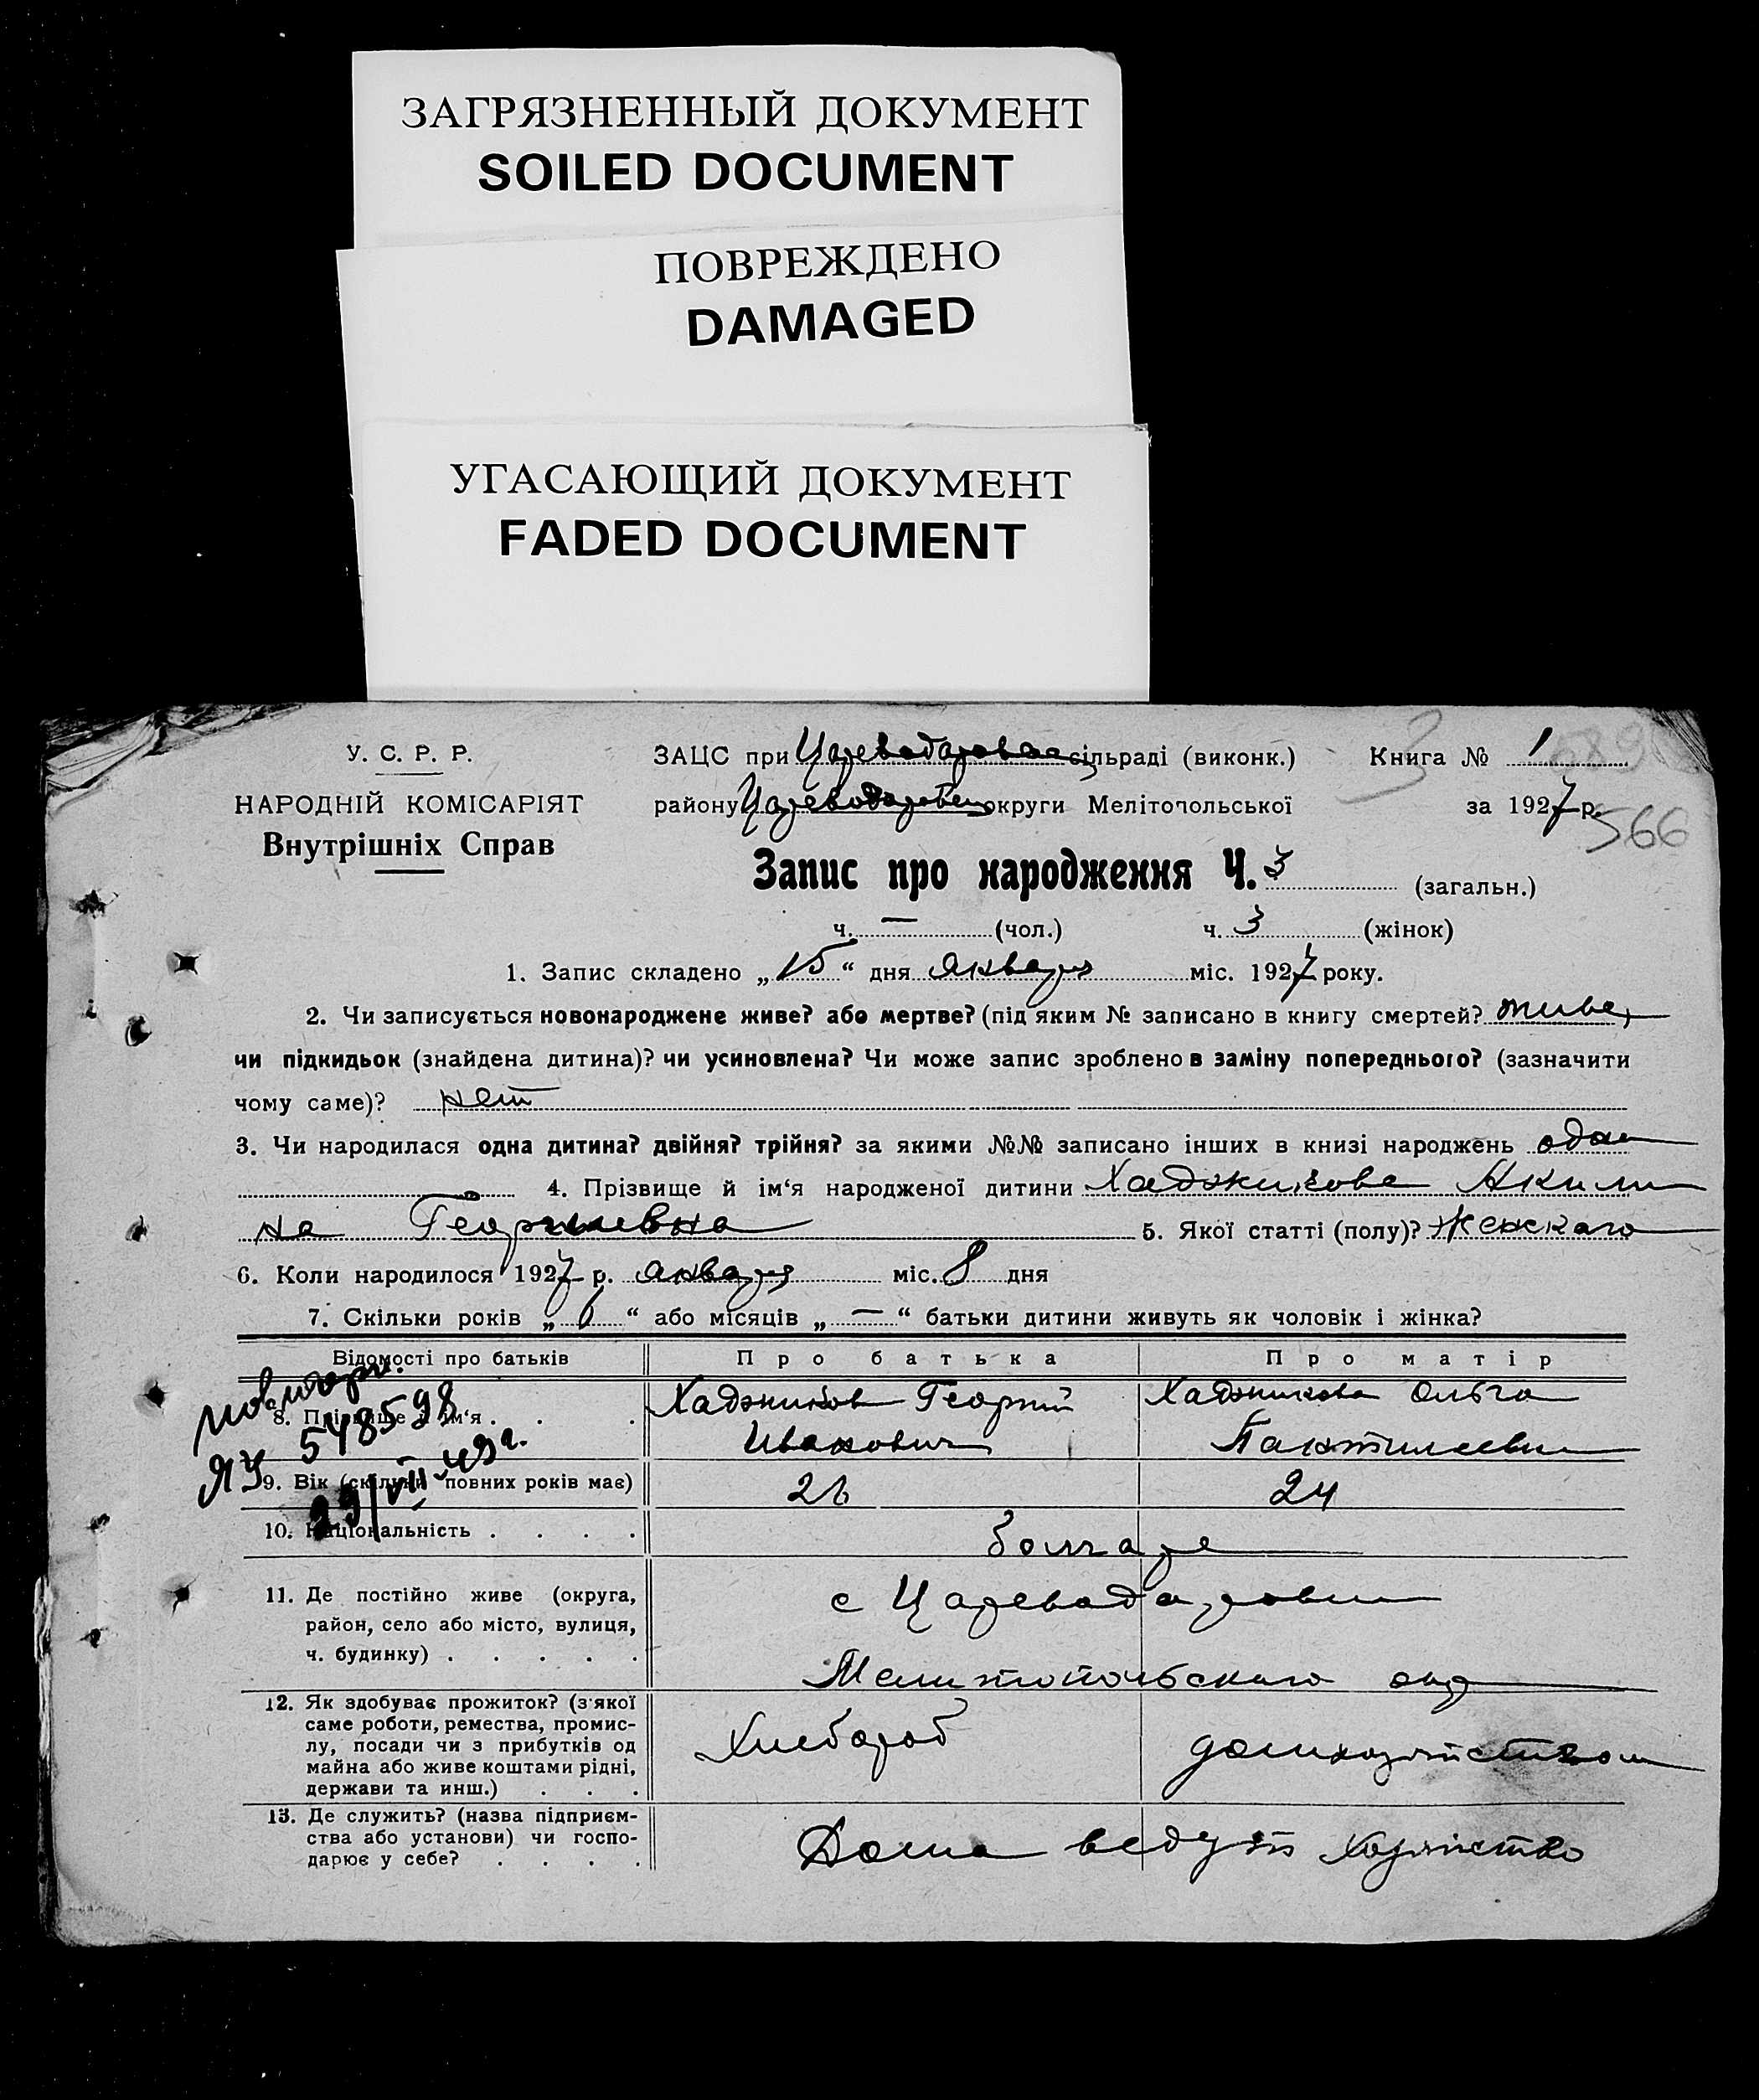 ЗАГРЯЗНЕННЫЙ ДОКУМЕНТ
SOILED DOCUMENT
ПОВРЕЖДЕНО
DAMAGED
УГАСАЮЩИЙ ДОКУМЕНТ
FADED DOCUMENT
У. С. Р. Р. ЗАЦС при сільраді (виконк.) Книга № 1
НАРОДНІЙ КОМІСАРІЯТ району округи Мелітопольської за 1927 р.
566
Внутрішніх Справ
Запис про народження Ч. 3 (загальн.)
ч. — (чол.) ч. 3 (жінок)
1. Запис складено „15“ дня января міс. 1927 року.
2. Чи записується новонароджене живе? або мертве? (під яким № записано в книгу смертей?
чи підкидьок (знайдена дитина)? чи усиновлена? Чи може запис зроблено в заміну попереднього? (зазначити
чому саме)? нет
3. Чи народилася одна дитина? двійня? трійня? за якими №№ записано інших в книзі народжень
4. Прізвище й ім‘я народженої дитини Хаджинова Акили
на Георгиевна 5. Якої статті (полу)? Женскаго
6. Коли народилося 1927 р. января міс. 8 дня
7. Скільки років „6“ або місяців „—“ батьки дитини живуть як чоловік і жінка?
Відомості про батьків Про батька Про матір
повторн.
8. Прізвище й ім‘я . . . Хаджинов Георгий Хаджинова Ольга
Иванович
ЯУ 548598
9. Вік (скільки повних років має) 26 24
29/VII 49 г.
10. Національність . . . . болгаре
11. Де постійно живе (округа, с Цареводаровки
район, село або місто, вулиця,
ч. будинку) . . . . . Мелитопольскаго окр
12. Як здобуває прожиток? (з‘якої
саме роботи, ремества, промис- Хлебороб
лу, посади чи з прибутків од
майна або живе коштами рідні,
держави та инш.) . . .
13. Де служить? (назва підприєм-
ства або установи) чи госпо- Дома ведут хозяйство
дарює у себе? . . . .